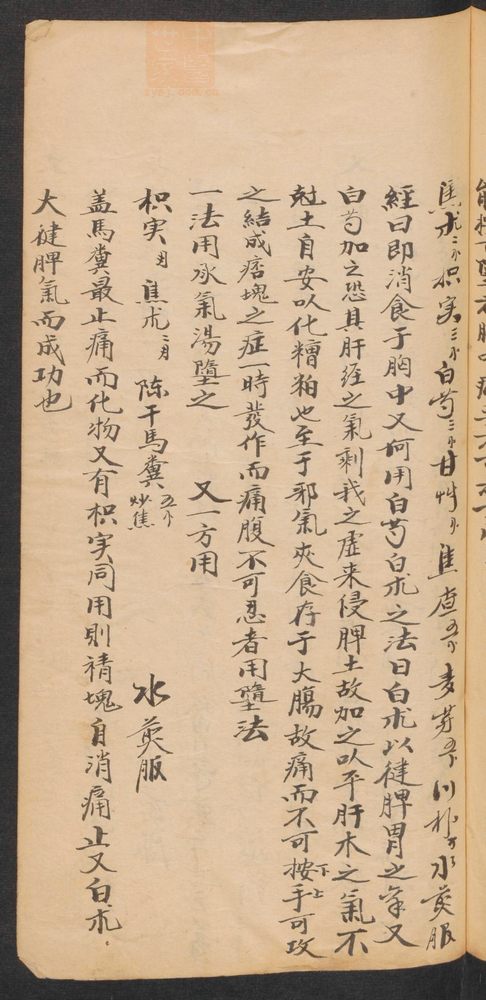 焦朮二个 枳实三个 白芍三个 甘艸个 焦查五个 麦芽五个 川朴 水煎服
經曰即消食于胸中又何用白芍白朮之法曰白朮以健脾胃之气又
白芍加之恐其肝经之氣剩我之虚来侵脾土故加之以平肝木之氣不
尅土自安以化糟粕也至于邪氣夾食存于大腸故痛而不可按手可攻
之結成痞塊之症一時發作而痛腹不可忍者用墮法
一法用承氣湯墮之 又一方用
枳实 焦朮 陈干馬糞五个炒焦 水煎服
盖馬糞最止痛而化物又有枳实同用則積塊自消痛止又白朮
大健脾氣而成功也